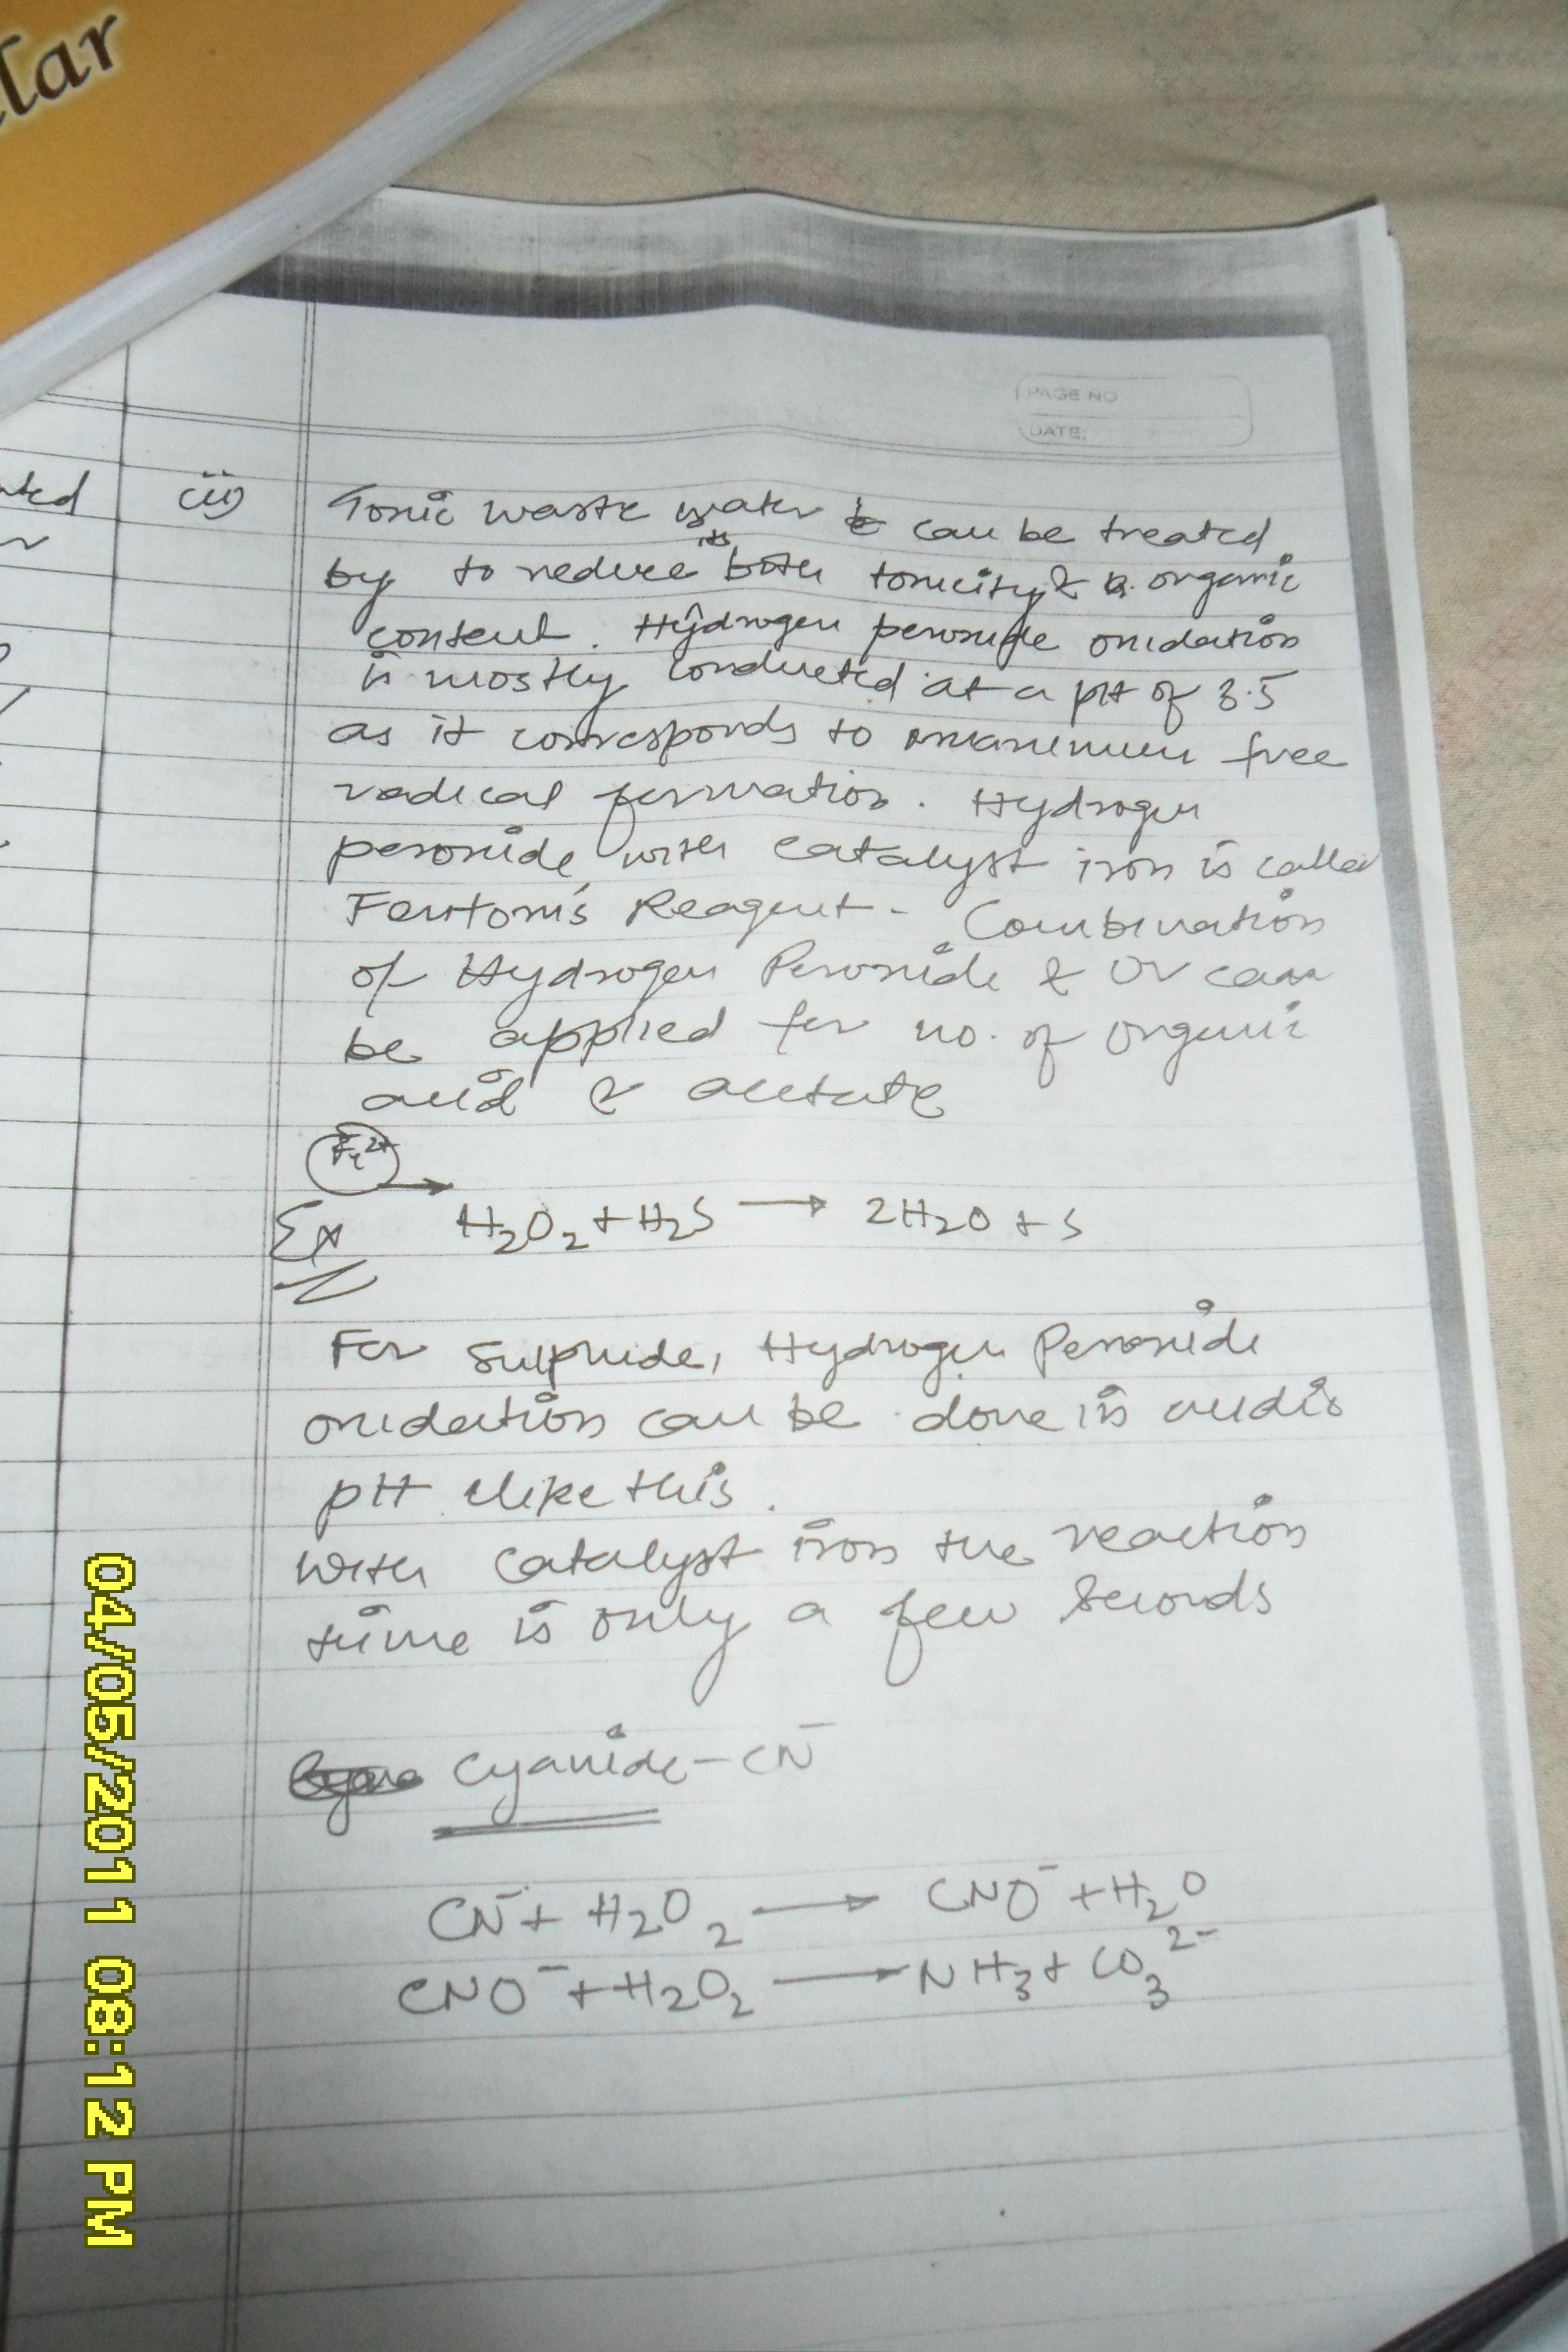 lar
PAGE NO
DATE:
ated
iii) Toxic waste water can be treated
by to reduce its both toxicity & organic
content. Hydrogen peroxide oxidation
is mostly conducted at a pH of 3.5
as it corresponds to maximum free
radical formation. Hydrogen
peroxide with catalyst iron is called
Fenton's Reagent. Combination
of Hydrogen Peroxide & UV can
be applied for no. of organic
acid & acetate
Fe²⁺ →
Ex H₂O₂ + H₂S → 2H₂O + S
For Sulphide, Hydrogen Peroxide
oxidation can be done in acidic
pH like this.
With catalyst iron the reaction
time is only a few seconds
Cyanide - CN⁻
CN⁻ + H₂O₂ → CNO⁻ + H₂O
CNO⁻ + H₂O₂ → NH₃ + CO₃²⁻
04/05/2011 08:12 PM